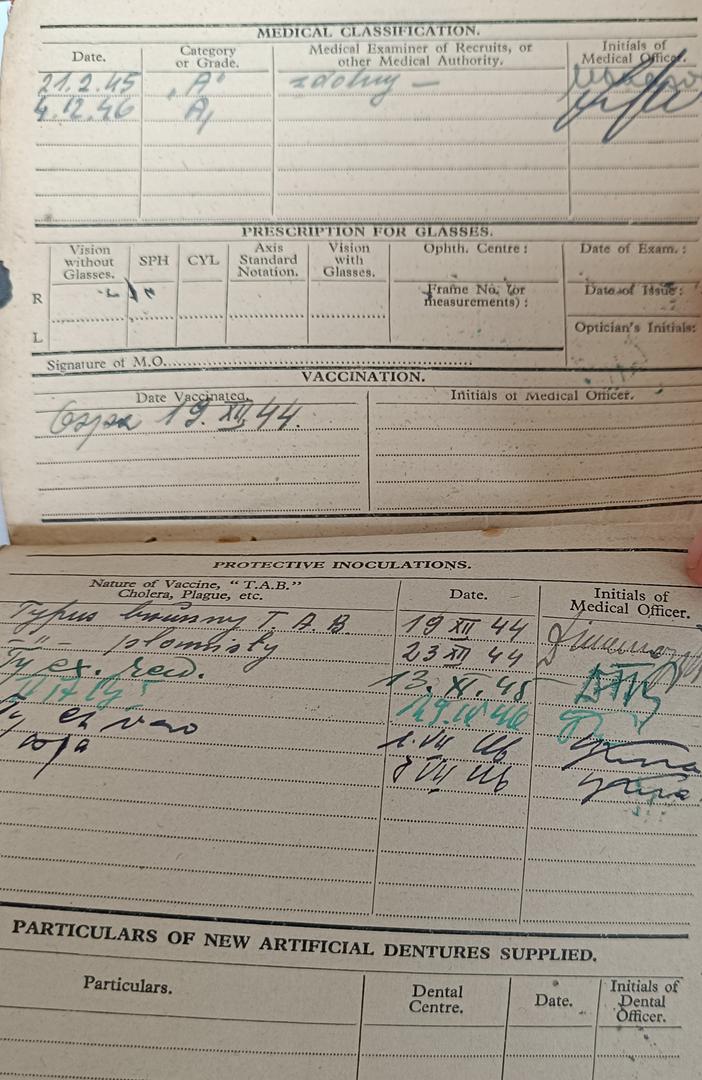 MEDICAL CLASSIFICATION.
Date. Category or Grade. Medical Examiner of Recruits, or other Medical Authority. Initials of Medical Officer.
21.2.45 "A" zdolny —
4.12.46 A1
PRESCRIPTION FOR GLASSES.
Vision without Glasses. SPH CYL Axis Standard Notation. Vision with Glasses. Ophth. Centre : Date of Exam. :
R Frame No. (or measurements) : Date of Issue :
L Optician's Initials:
Signature of M.O.
VACCINATION.
Date Vaccinated. Initials of Medical Officer.
Ospa 19. XII 44.
PROTECTIVE INOCULATIONS.
Nature of Vaccine, "T.A.B." Cholera, Plague, etc. Date. Initials of Medical Officer.
Typus brzuszny T. A. B. 19 XII 44
—"— plamisty 23 XII 44
Ty ex. 13. XI. 45
46
Ty ex 1. VII 46
ospa VII 46
PARTICULARS OF NEW ARTIFICIAL DENTURES SUPPLIED.
Particulars. Dental Centre. Date. Initials of Dental Officer.